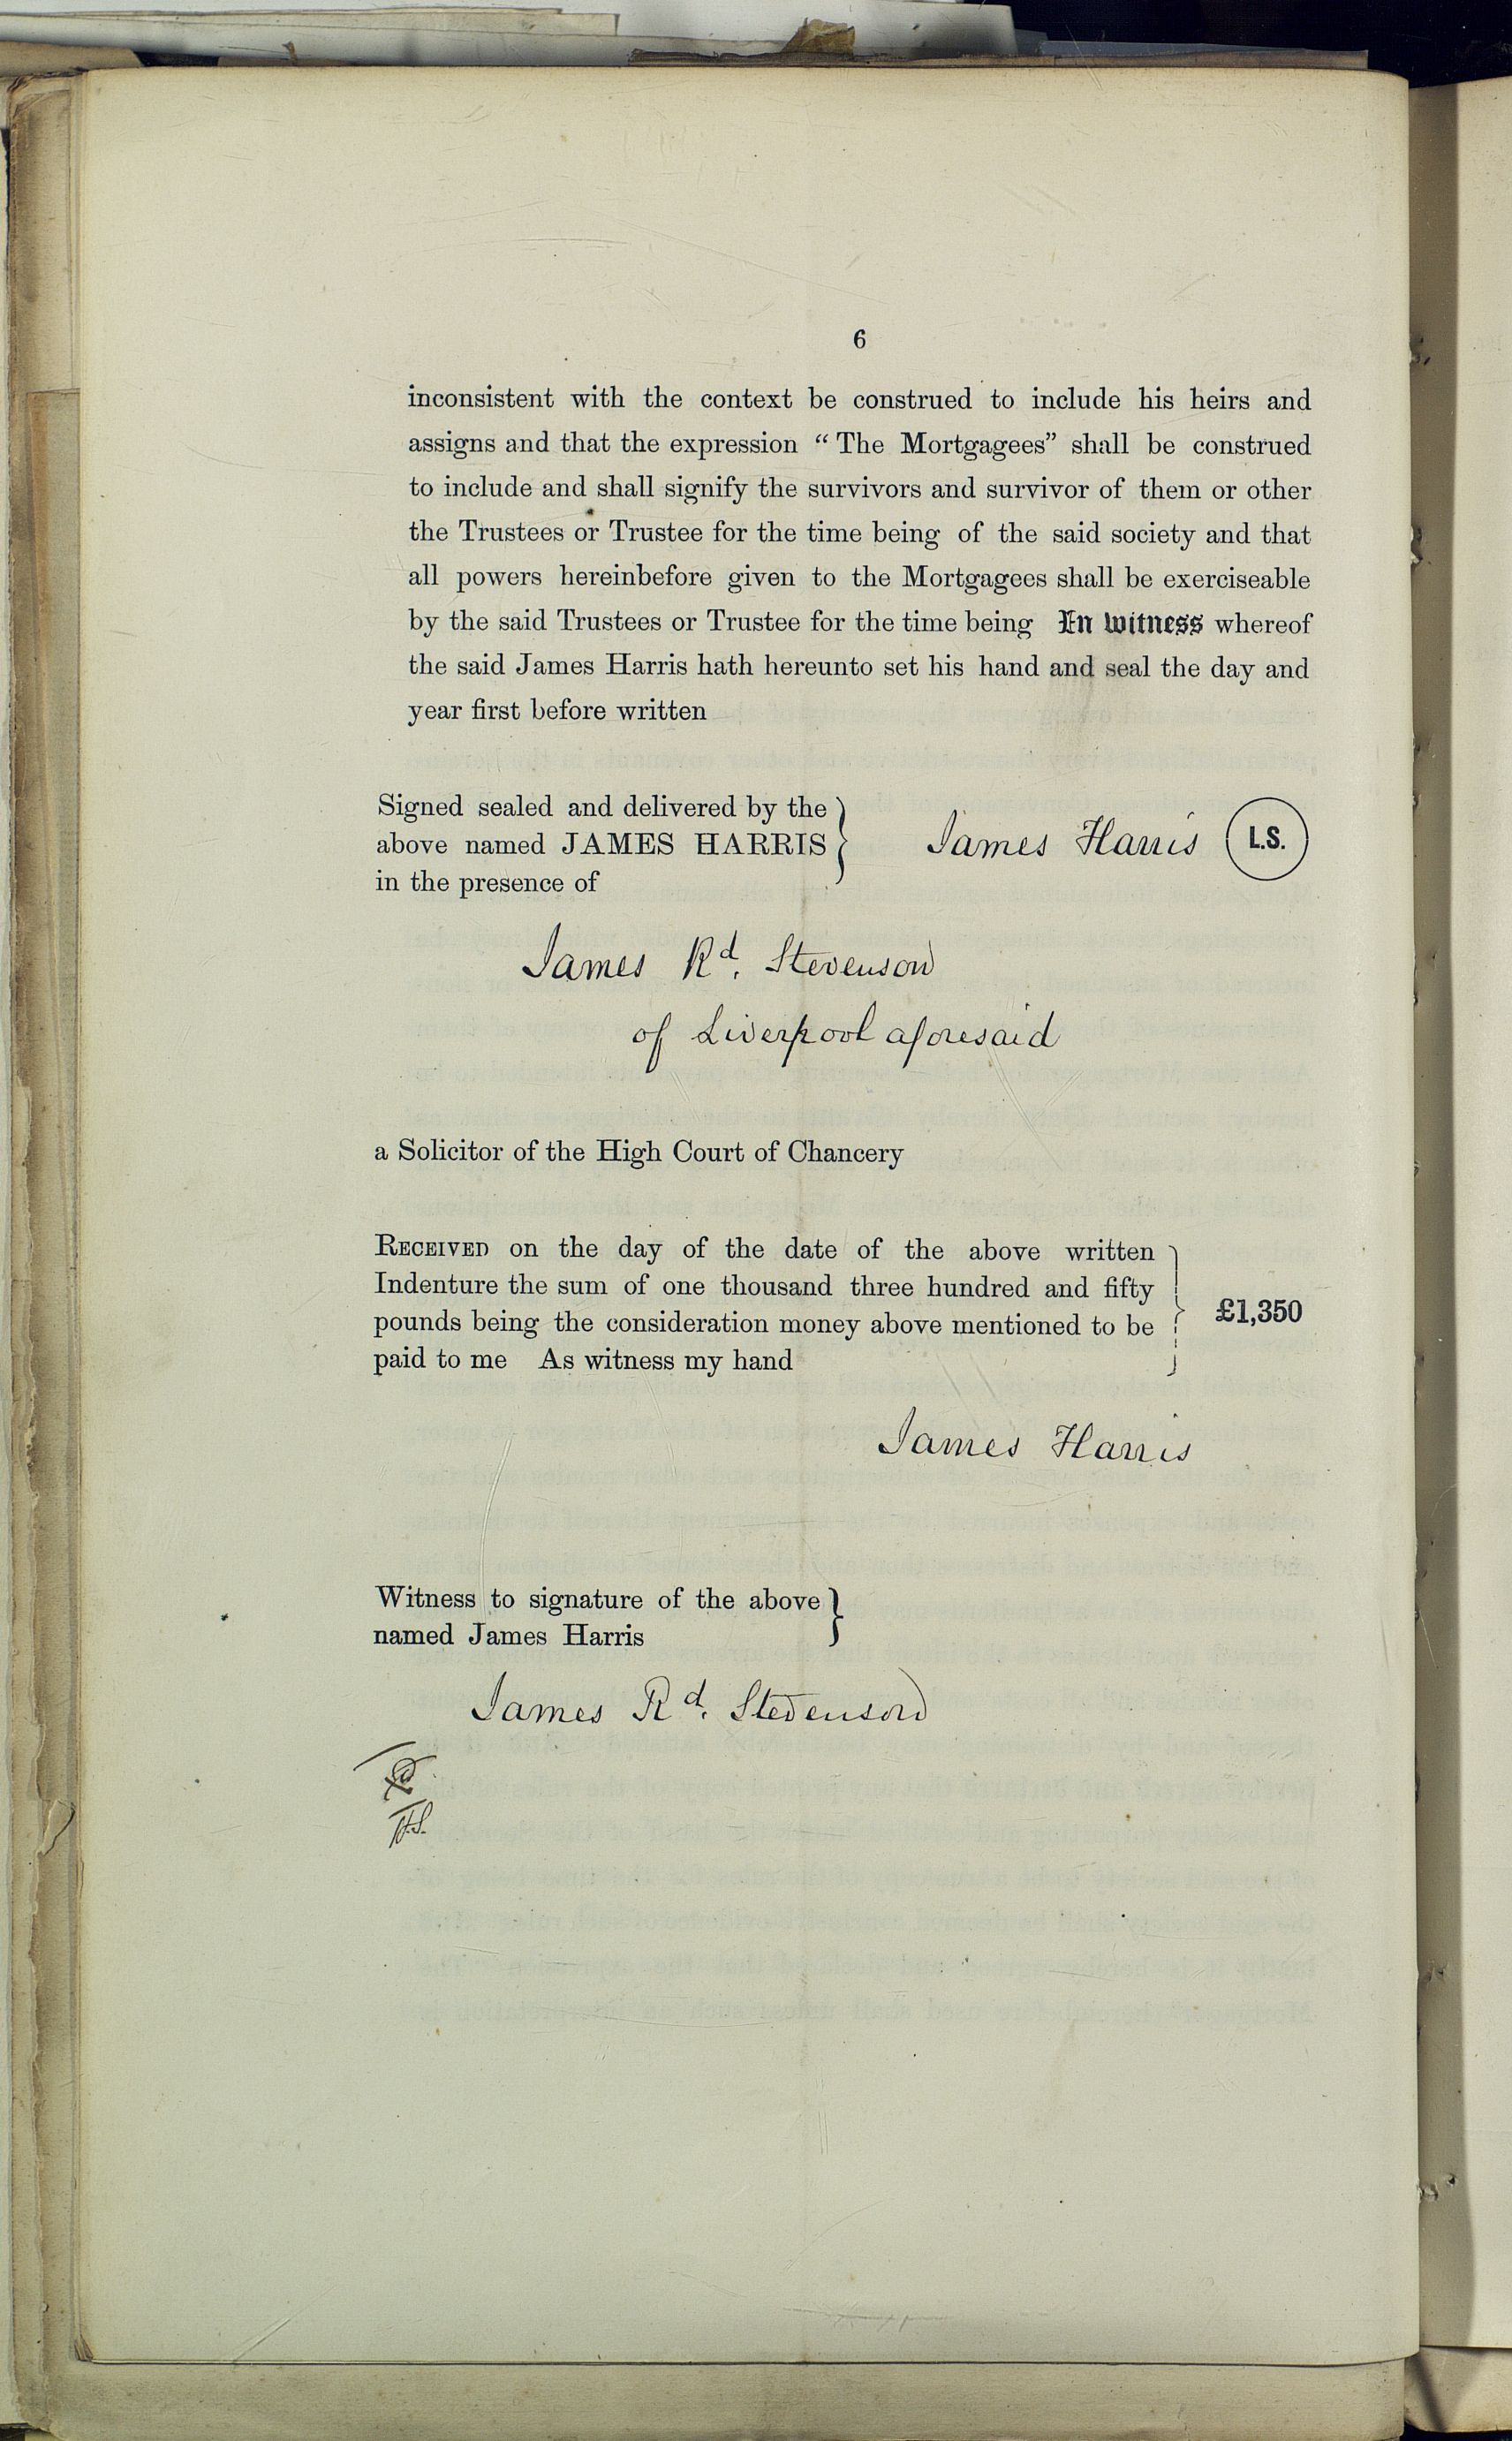 6
inconsistent with the context be construed to include his heirs and
assigns and that the expression “The Mortgagees” shall be construed
to include and shall signify the survivors and survivor of them or other
the Trustees or Trustee for the time being of the said society and that
all powers hereinbefore given to the Mortgagees shall be exerciseable
by the said Trustees or Trustee for the time being In witness whereof
the said James Harris hath hereunto set his hand and seal the day and
year first before written
Signed sealed and delivered by the
above named JAMES HARRIS
in the presence of
James Harris L.S.
James Rd. Stevenson
of Liverpool aforesaid
a Solicitor of the High Court of Chancery
RECEIVED on the day of the date of the above written
Indenture the sum of one thousand three hundred and fifty
pounds being the consideration money above mentioned to be
paid to me As witness my hand
£1,350
James Harris
Witness to signature of the above
named James Harris
James Rd. Stevenson